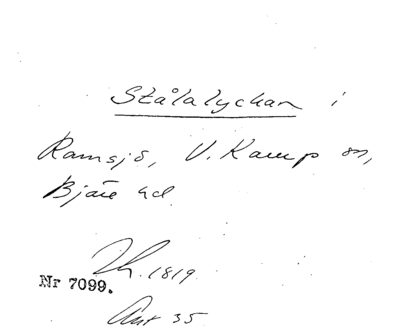 Stålalyckan i
Ramsjö, V. Karup sn,
Bjäre hd.
1819
Nr 7099.
Ant 35